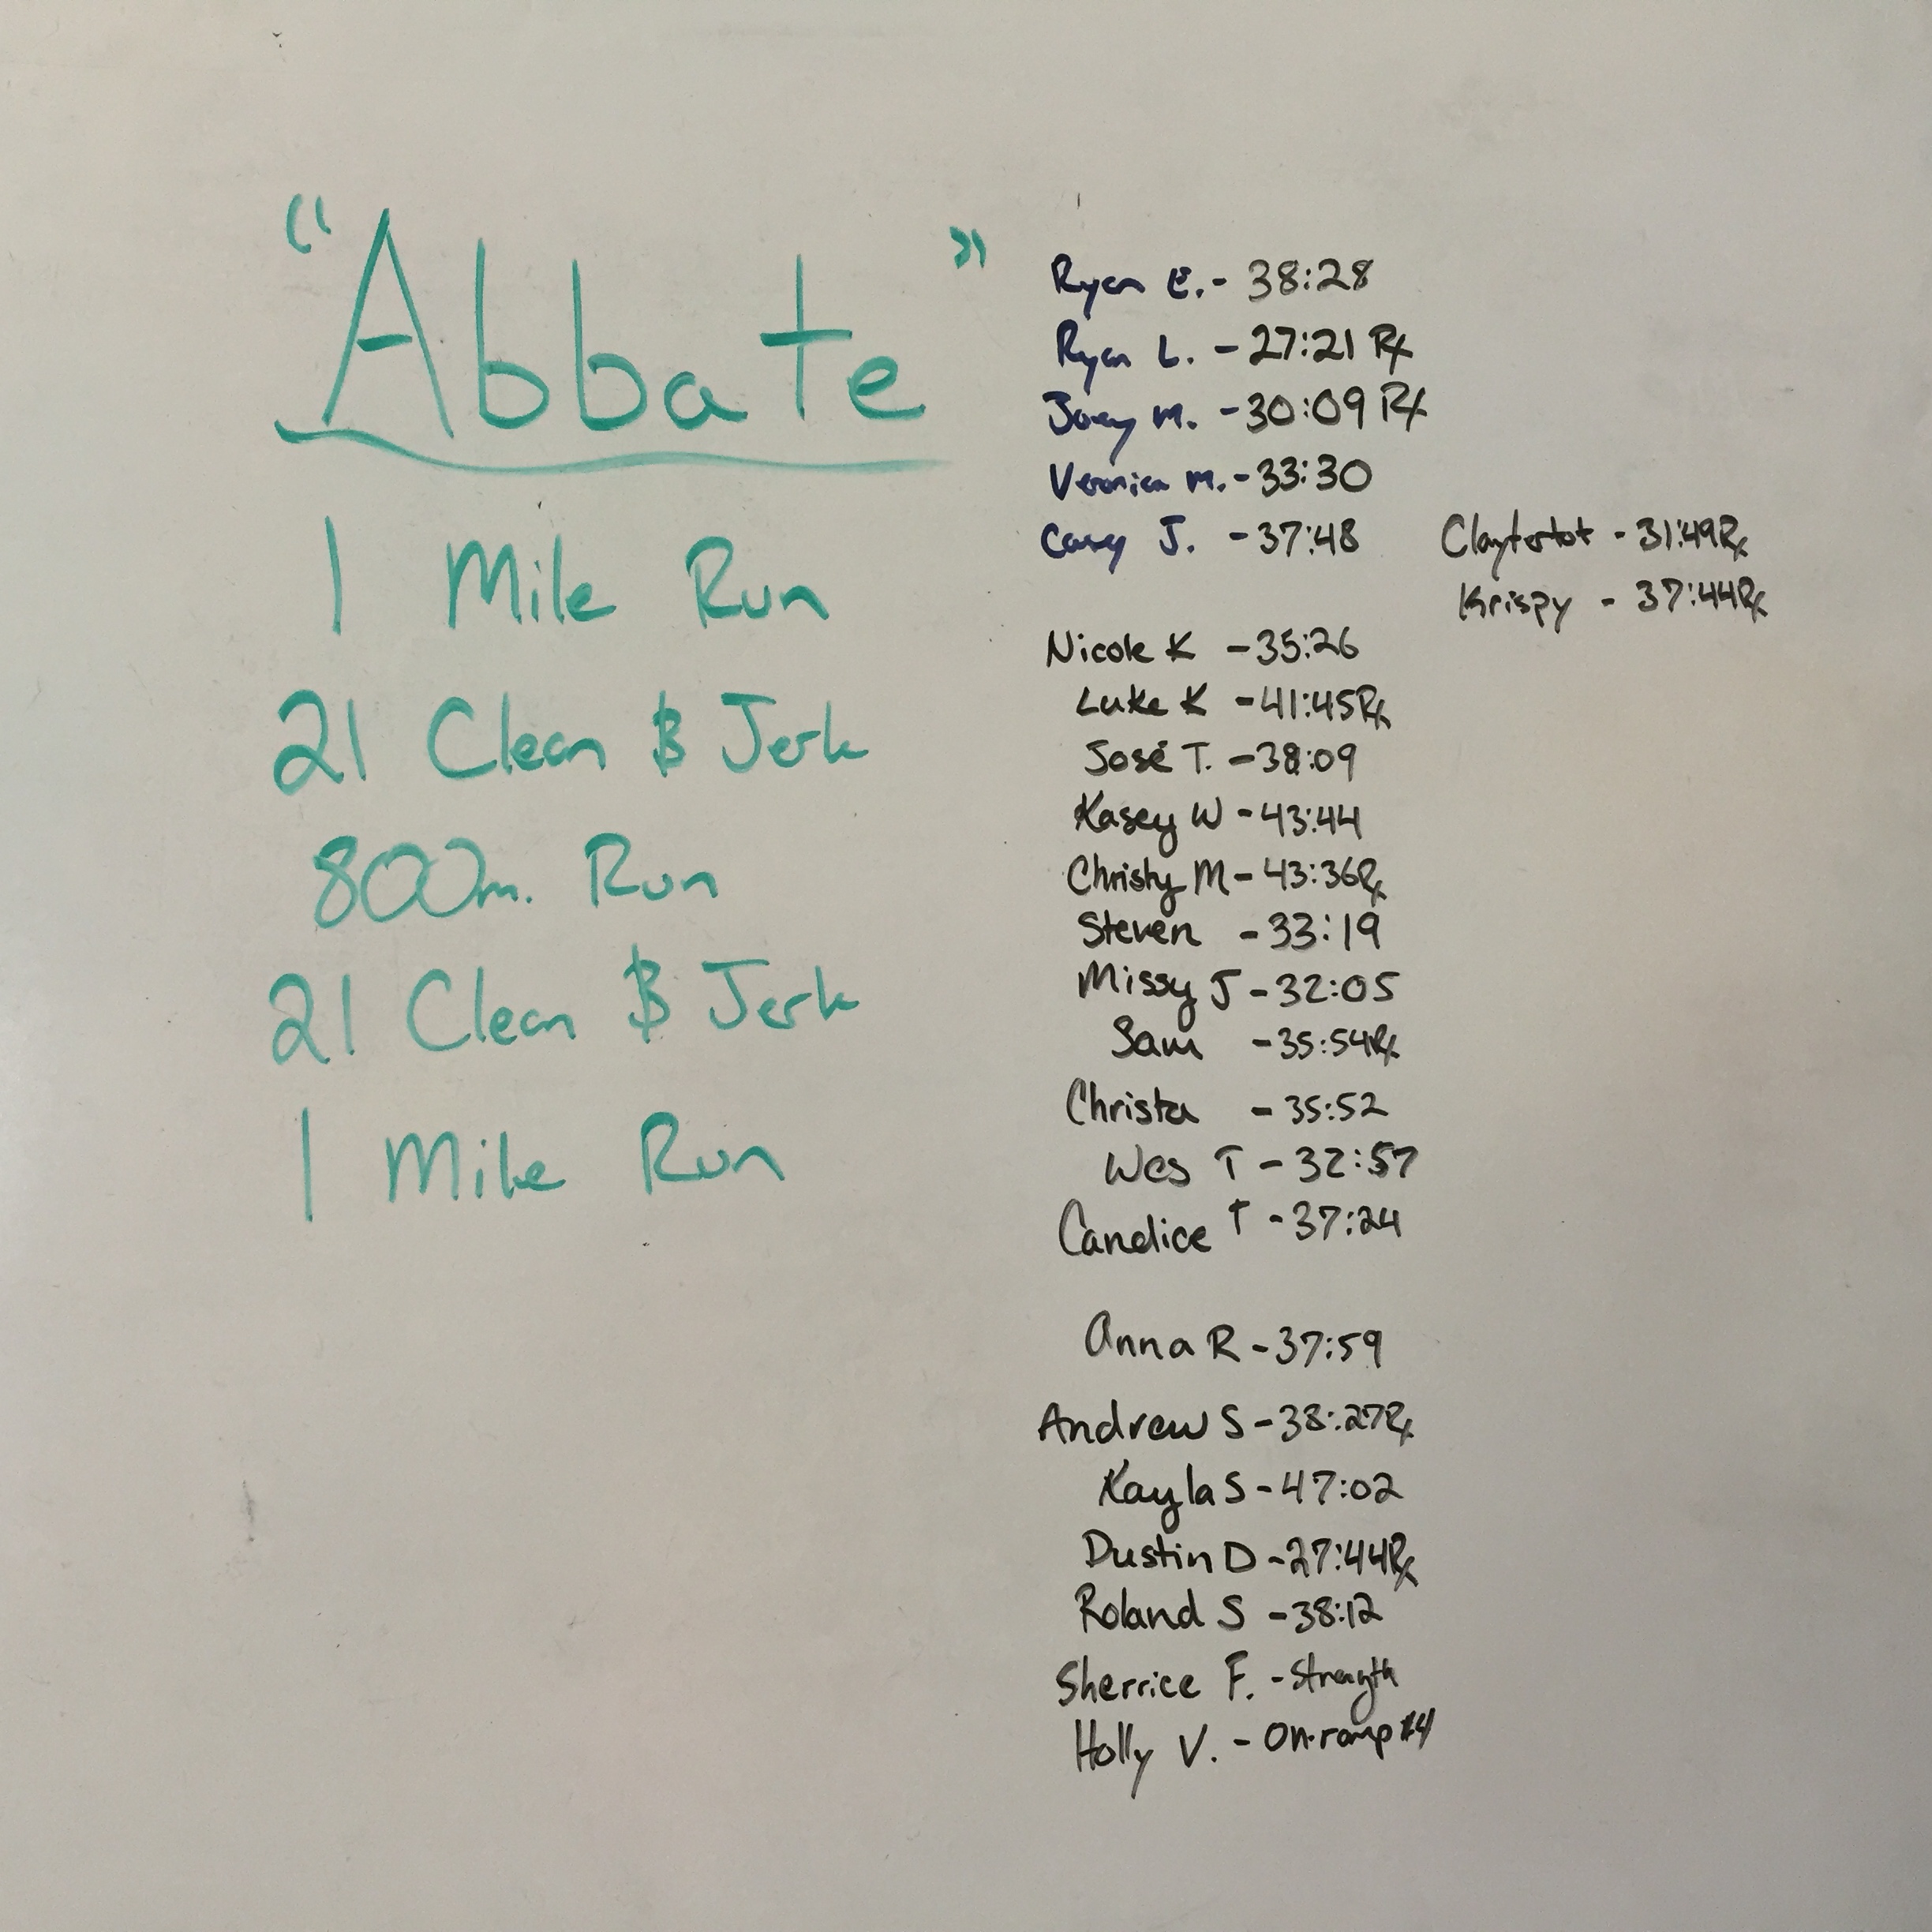 "Abbate"
1 Mile Run
21 Clean & Jerk
800m. Run
21 Clean & Jerk
1 Mile Run
Ryan E. - 38:28
Ryan L. - 27:21 Rx
Joey M. - 30:09 Rx
Veronica M. - 33:30
Casey J. - 37:48
Claytertot - 31:49 Rx
Krispy - 37:44 Rx
Nicole K - 35:26
Luke K - 41:45 Rx
José T. - 38:09
Kasey W - 43:44
Christy M - 43:36 Rx
Steven - 33:19
Missy J - 32:05
Sam - 35:54 Rx
Christa - 35:52
Wes T - 32:57
Candice T - 37:24
Anna R - 37:59
Andrew S - 38:27 Rx
Kayla S - 47:02
Dustin D - 27:44 Rx
Roland S - 38:12
Sherrice F. - Strength
Holly V. - On-ramp #4